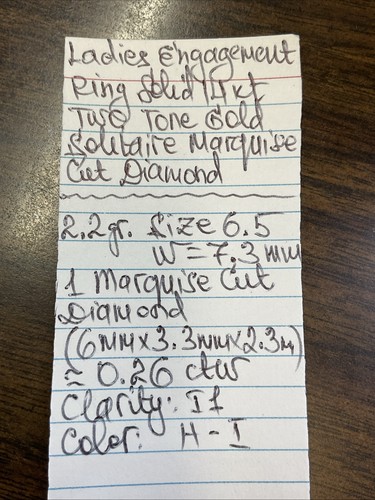 Ladies Engagement
Ring Solid 14kt
Two Tone Gold
Solitaire Marquise
Cut Diamond
2.2gr. Size 6.5
W=7.3mm
1 Marquise Cut
Diamond
(6mm x 3.3mm x 2.3m)
≈ 0.26 ctw
Clarity: I1
Color: H-I